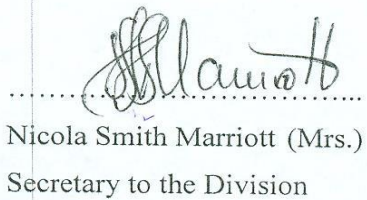 Marriott
Nicola Smith Marriott (Mrs.)
Secretary to the Division